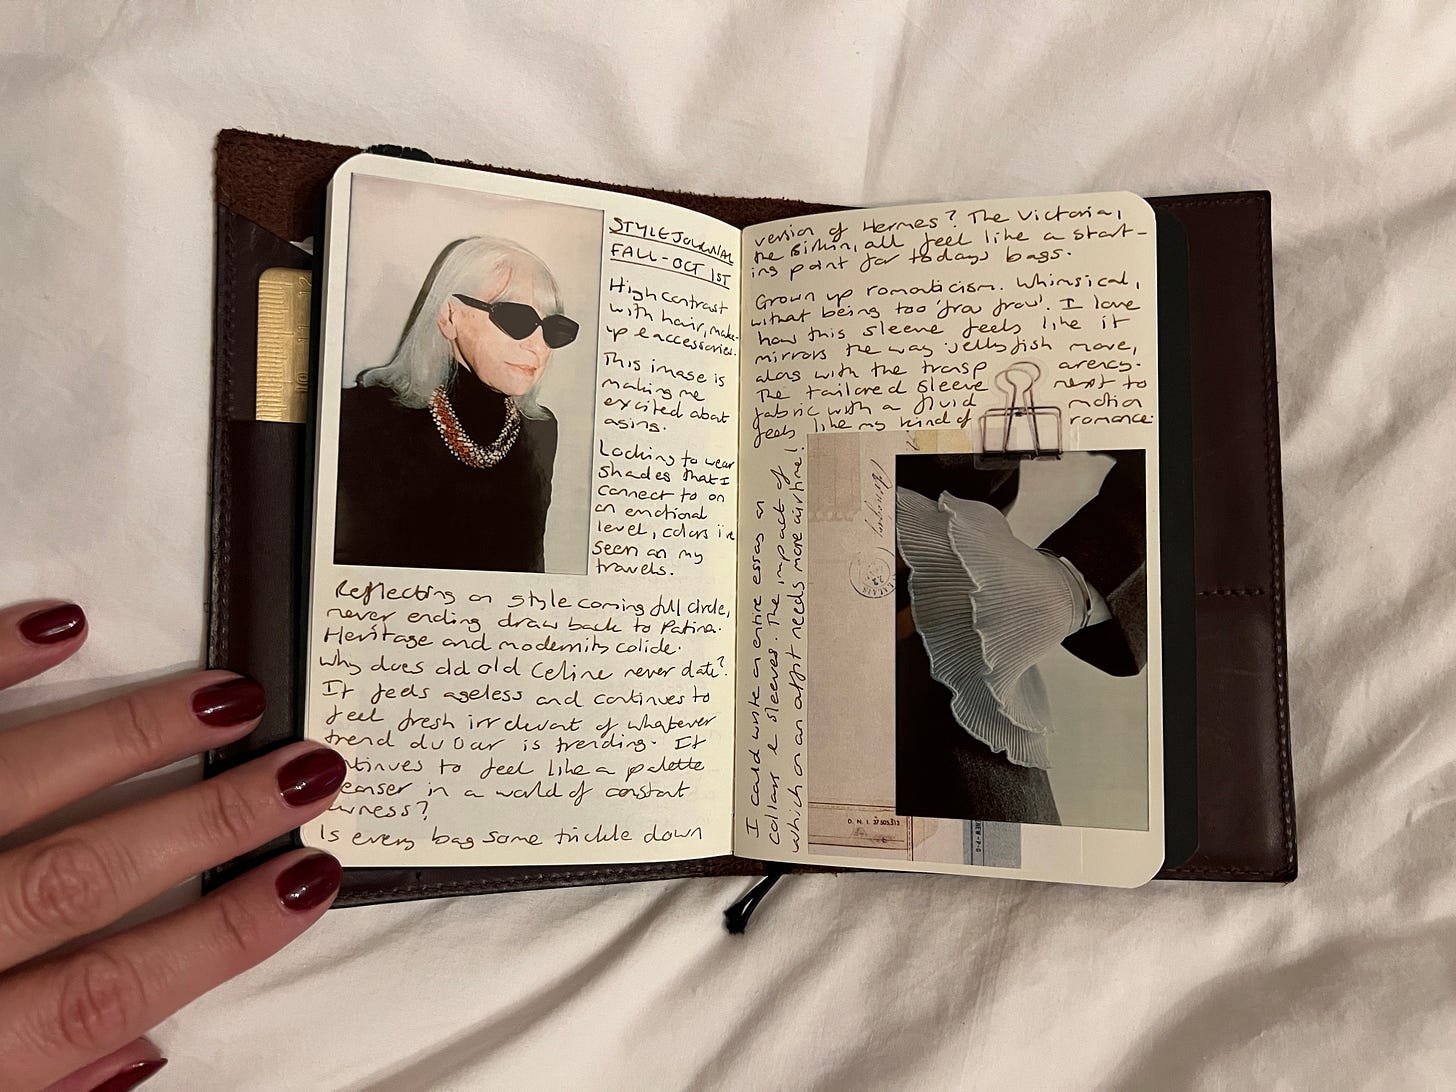 STYLE JOURNAL
FALL - OCT 1ST
High contrast
with hair, make-
up & accessories.
This image is
making me
excited about
aging.
Looking to wear
shades that I
connect to on
an emotional
level, colors i've
seen on my
travels.
Reflecting on style coming full circle,
never ending draw back to Patina.
Heritage and modernity colide.
Why does old old Celine never date?
It feels ageless and continues to
feel fresh irrelevant of whatever
trend du jour is trending. It
ntinues to feel like a palette
eanser in a world of constant
wness?
Is every bag some trickle down
version of Hermes? The Victoria,
the Birkin, all feel like a start-
ing point for todays bags.
Grown up romanticism. Whimsical,
without being too 'frou frou'. I love
how this sleeve feels like it
mirrors the way jellyfish move,
along with the transp arency.
The tailored sleeve next to
fabric with a fluid motion
feels like my kind of romance.
I could write an entire essay on
collars & sleeves. The impact of
which on an outfit needs more airtime!
D. N. I. 37.505.313
12